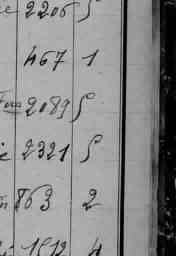 2206 5
467 1
2089 5
2321 5
863 2
1512 4